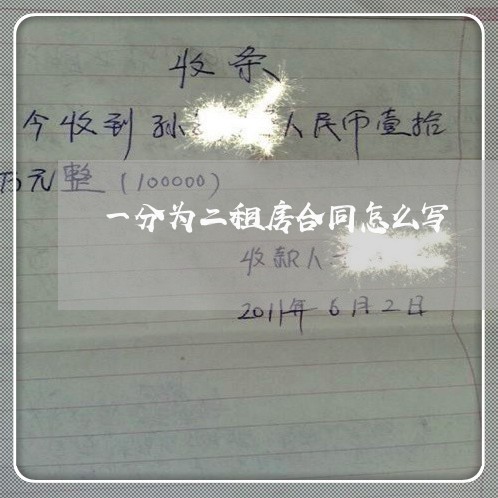 收条
今收到孙 人民币壹拾
万元整(100000)
一分为二租房合同怎么写
收款人
2011年6月2日